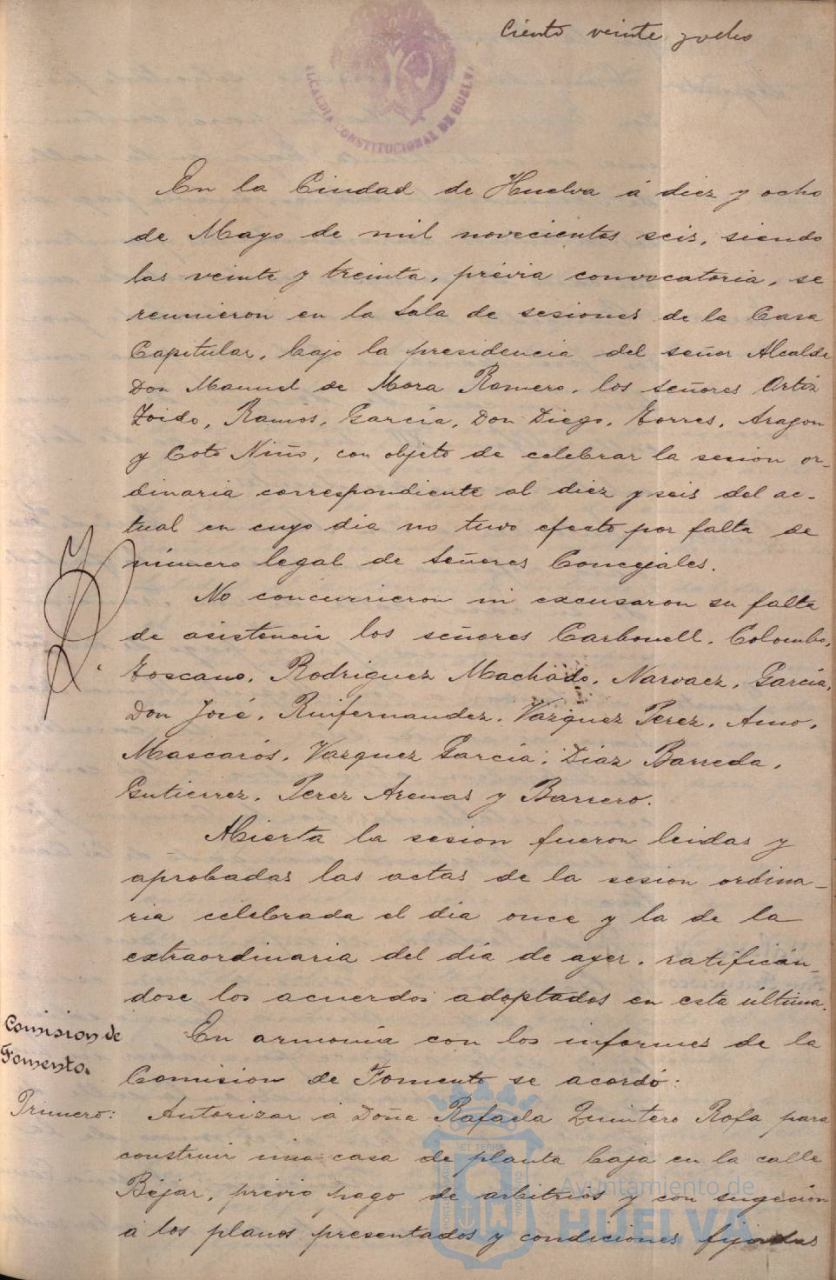 Ciento veinte y ocho
ALCALDIA CONSTITUCIONAL DE HUELVA
En la Ciudad de Huelva á diez y ocho
de Mayo de mil novecientos seis, siendo
las veinte y treinta, prévia convocatoria, se
reunieron en la Sala de sesiones de la Casa
Capitular, bajo la presidencia del señor Alcalde
Don Manuel de Mora Romero, los señores Ortiz
Zoido, Ramos, García, Don Diego, Torres, Aragon
y Coto Niño, con objeto de celebrar la sesion or-
dinaria correspondiente al diez y seis del ac-
tual en cuyo dia no tuvo efecto por falta de
número legal de Señores Concejales.
No concurrieron ni excusaron su falta
de asistencia los señores Carbonell, Colombo,
Toscano, Rodriguez Machado, Narvaez, García,
Don José, Ruifernandez, Vazquez Perez, Amo,
Mascarós, Vazquez García, Diaz Barreda,
Gutierrez, Perez Arenas y Barrero.
Abierta la sesion fueron leidas y
aprobadas las actas de la sesion ordina-
ria celebrada el dia once y la de la
extraordinaria del dia de ayer, ratificán-
dose los acuerdos adoptados en esta última.
Comision de
Fomento.
En armonía con los informes de la
Comision de Fomento se acordó:
Primero: Autorizar á Doña Rafaela Quintero Rofa para
construir una casa de planta baja en la calle
Béjar, prévio pago de arbitrios y con sugecion
á los planos presentados y condiciones fijadas
Ayuntamiento de
HUELVA